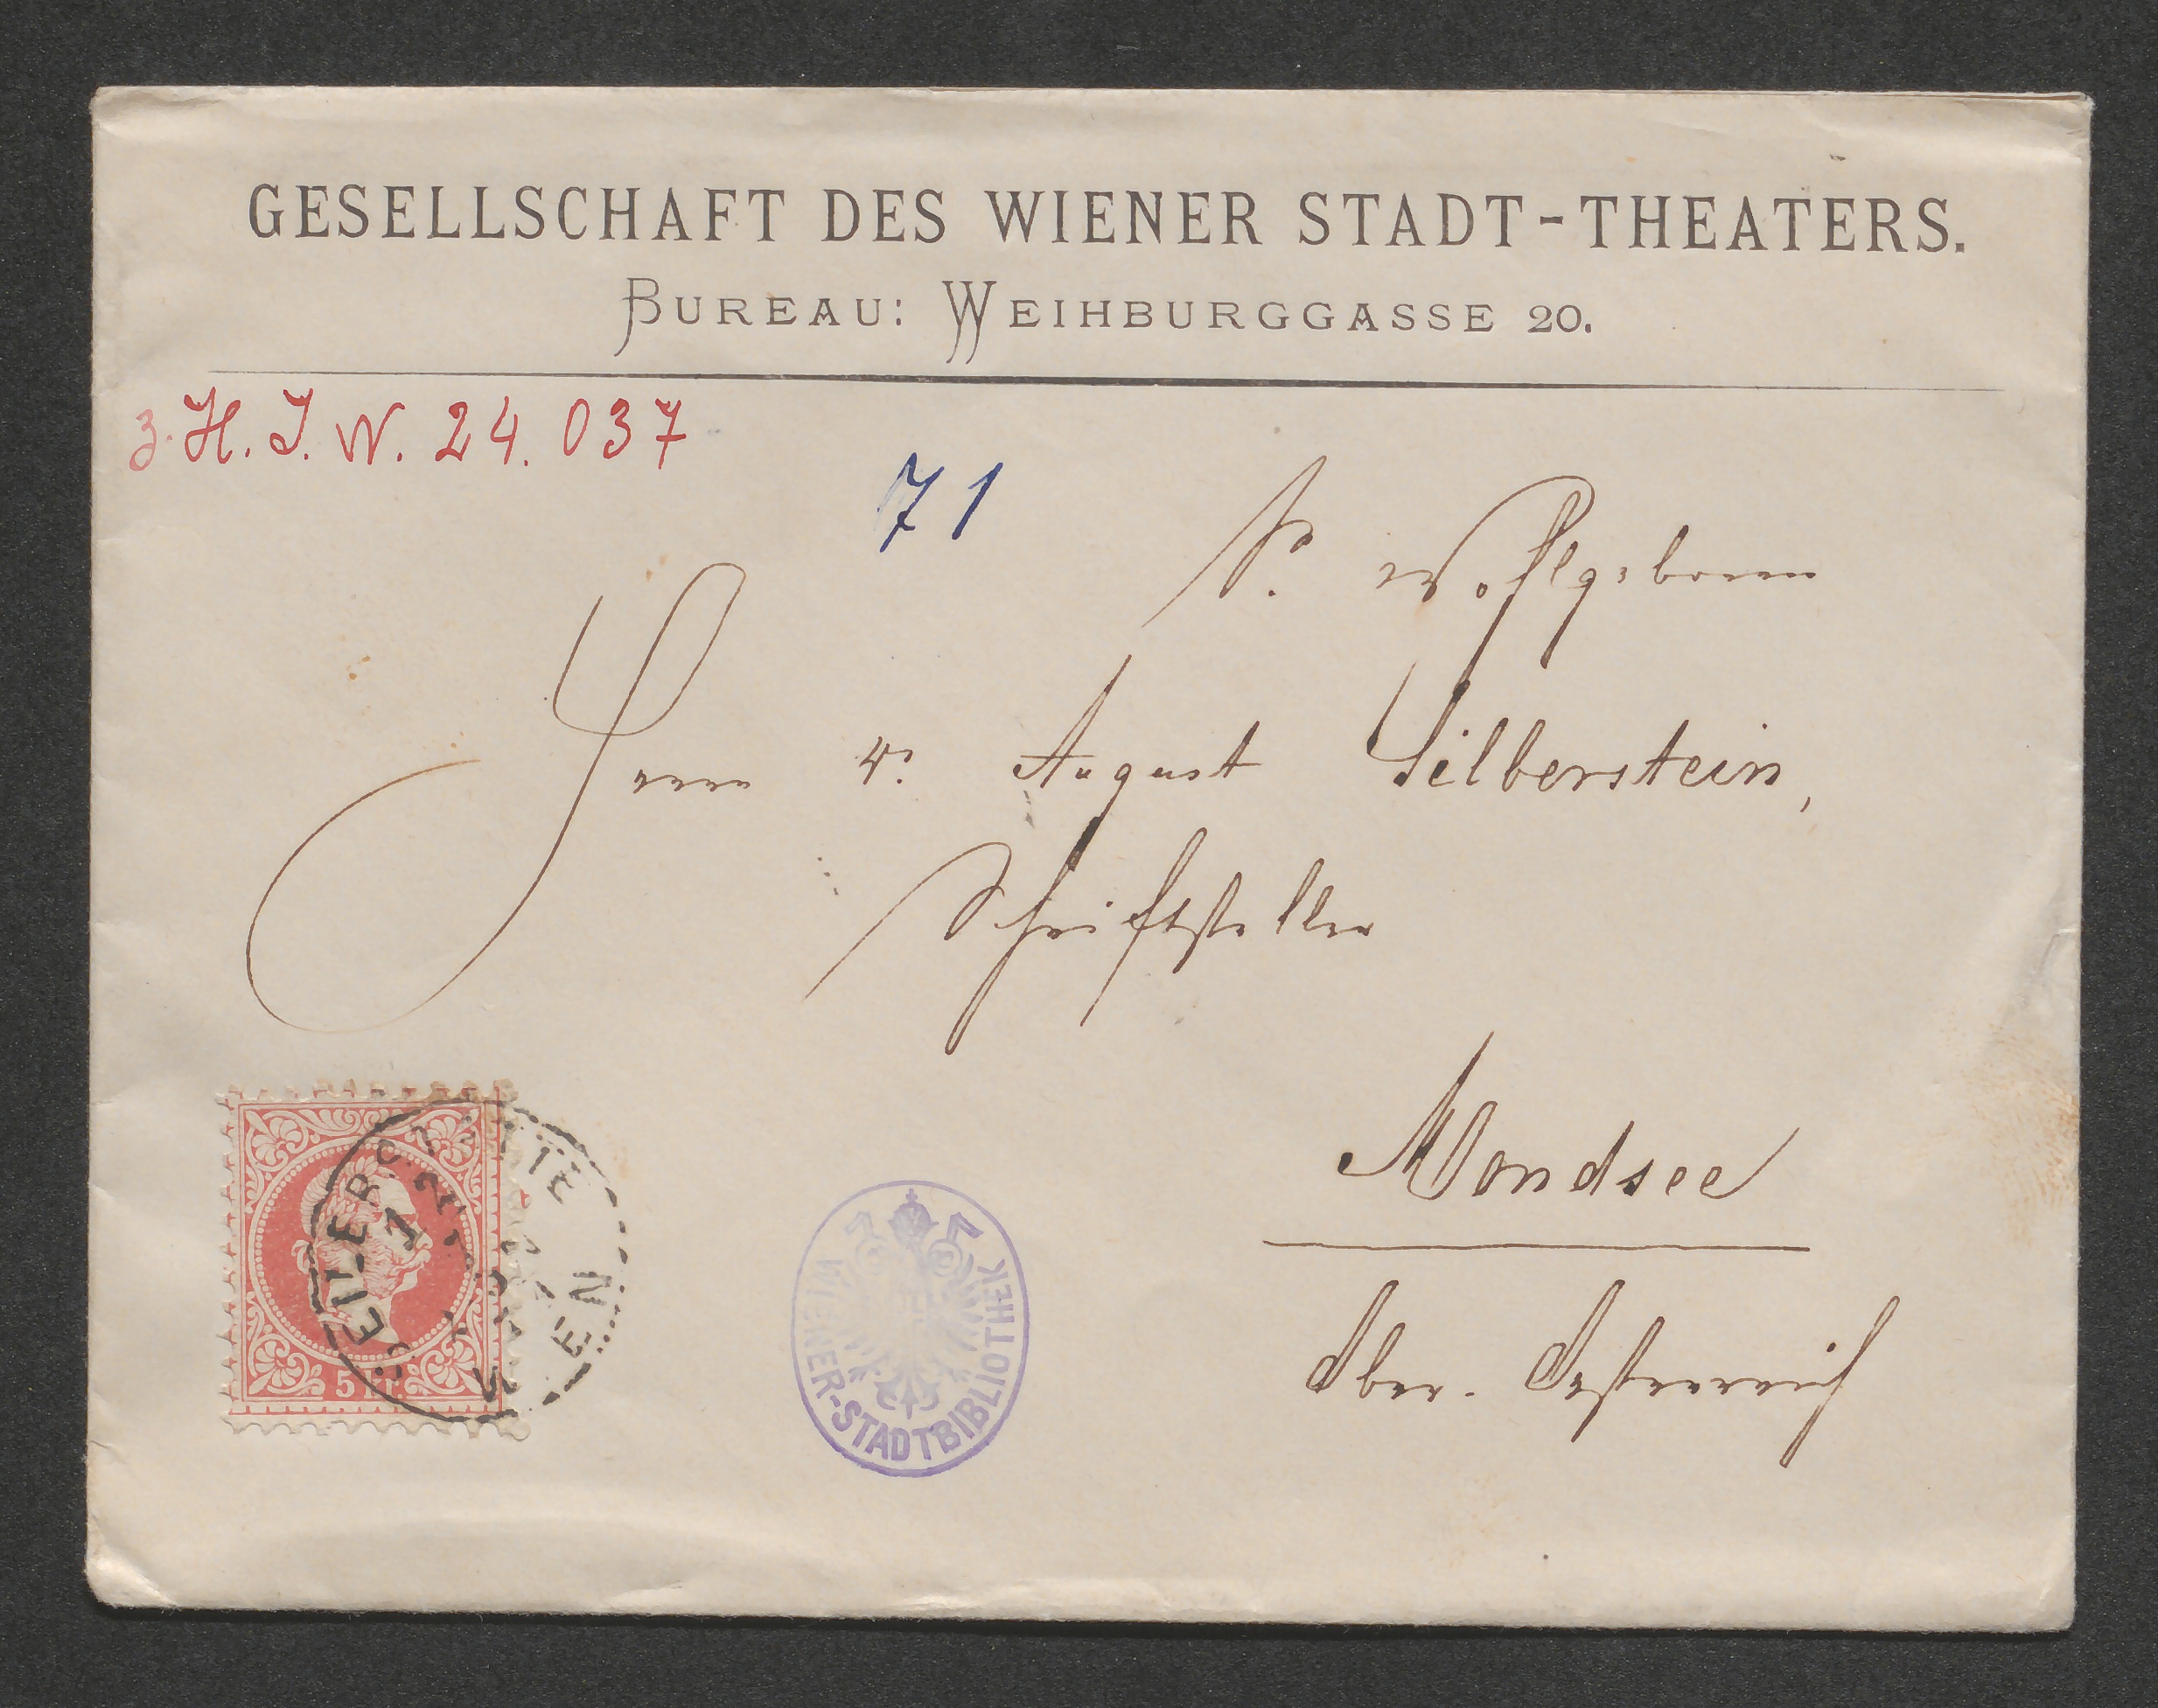 GESELLSCHAFT DES WIENER STADT-THEATERS.
BUREAU: WEIHBURGGASSE 20.
z. H. J. N. 24.037
71
Sr. Wohlgeboren
Herrn Dr. August Silberstein,
Schriftsteller
Mondsee
Ober-Oesterreich
5 kr.
SEILERSTÄTTE
WIEN
WIENER-STADTBIBLIOTHEK